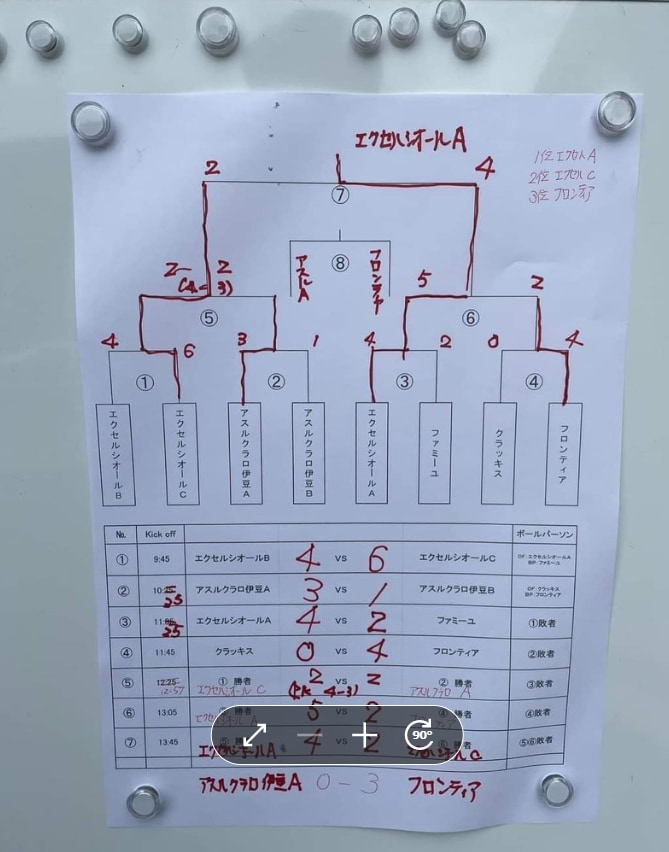 エクセルシオールA
1位 エクセルA
2位 エクセルC
3位 フロンティア
2 4
⑦
アスルA ⑧ フロンティア
2 2 5 2
(4-3)
⑤ ⑥
4 6 3 1 4 2 0 4
① ② ③ ④
エクセルシオールB
エクセルシオールC
アスルクラロ伊豆A
アスルクラロ伊豆B
エクセルシオールA
ファミーユ
クラッキス
フロンティア
No. Kick off ボールパーソン
① 9:45 エクセルシオールB 4 vs 6 エクセルシオールC OF:エクセルシオールA
BP:ファミーユ
② 10:25 アスルクラロ伊豆A 3 vs 1 アスルクラロ伊豆B OF:クラッキス
35 BP:フロンティア
③ 11:05 エクセルシオールA 4 vs 2 ファミーユ ①敗者
25
④ 11:45 クラッキス 0 vs 4 フロンティア ②敗者
⑤ 12:25 ① 勝者 2 vs 2 ② 勝者 ③敗者
12:57 エクセルシオールC (PK 4-3) アスルクラロ A
⑥ 13:05 勝者 5 vs 2 ④ 勝者 ④敗者
⑦ 13:45 エクセルシオールA 4 vs 2 ⑤⑥敗者
アスルクラロ伊豆A 0-3 フロンティア
90°